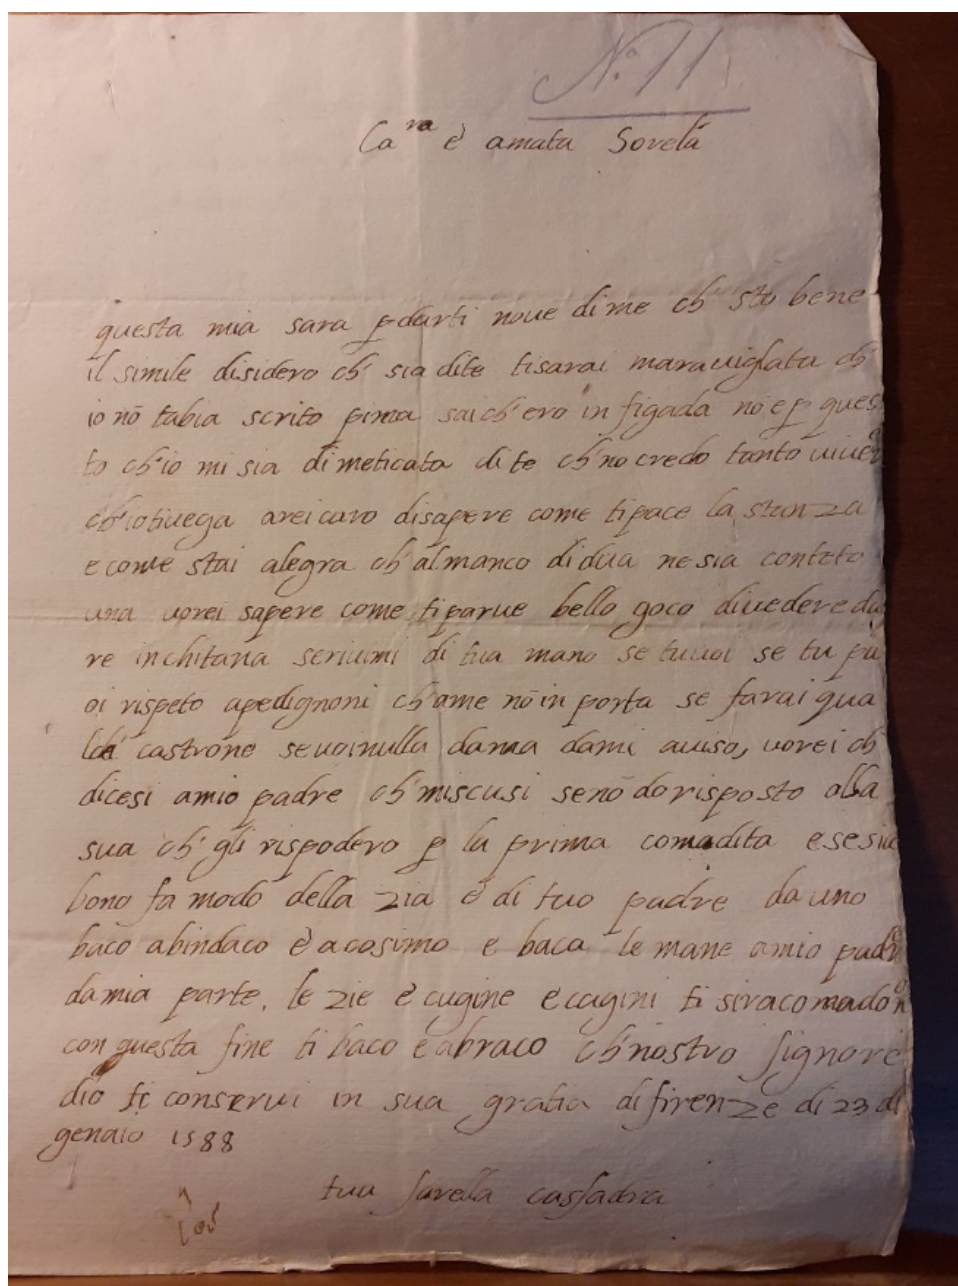 N.º 11
Ca.ra è amata Sorela
questa mia sara p darti nove di me ch' sto bene
il simile disidero ch' sia dite tisarai maraviglata ch'
io nō tabia scrito pima saich'ero in figada nō e p ques
to ch'io mi sia dimeticata di te ch' no credo tanto viver
ch'iotivega areicaro disapere come tipace la stanza
e come stai alegra ch' almanco didua nesia conteto
una vorei sapere come tiparve bello goco divedere da
re inchitana serivimi di tua mano se tuvoi se tu pu
oi rispeto apedignoni ch'ame nō in porta se farai qua
lch' castrone sevoinulla dama dami aviso, vorei ch'
dicesi amio padre ch' miscusi senō dorisposto alla
sua ch' gli rispodero p la prima comadita e sesia
bono fa modo della zia è di tuo padre da uno
baco abindaco è acosimo e baca le mane amio padr
damia parte. le zie è cugine ecugini ti siracomadon
con questa fine ti baco è abraco ch' nostro signore
dio ti conservi in sua gratia di firenze di 23 di
genaio 1588
tua sorella cassadra